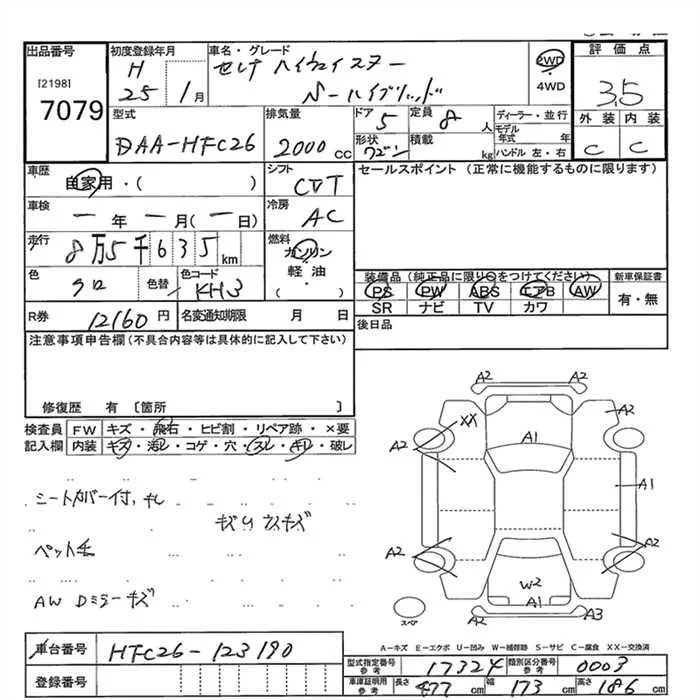 出品番号 初度登録年月 車名・グレード 評価点
[2198] H セレナ ハイウェイスター 2WD
7079 25 1月 S-ハイブリッド ・4WD 3.5
型式 排気量 ドア 定員 ディーラー・並行 外装 内装
DAA-HFC26 2000cc 5 8人 モデル年式 年
形状 ワゴン 積載 kg ハンドル 左・右 C C
車歴 シフト セールスポイント (正常に機能するものに限ります)
自家用・( ) CVT
車検 冷房
一年 一月(一日) AC
走行 燃料
8万5千635km ガソリン
色 色替 色コード 軽油 装備品 (純正品に限り○をつけてください) 新車保証書
クロ / KH3 ・( ) PS PW ABS エアB AW 有・無
SR ナビ TV カワ
R券 12160円 名変通知期限 月 日 後日品
注意事項申告欄(不具合内容等は具体的に記入して下さい)
修復歴 有 〔箇所 〕
検査員 FW キズ・飛石・ヒビ割・リペア跡・×要
記入欄 内装 キズ・汚レ・コゲ・穴・スレ・キレ・破レ
シートカバー付,
ペット毛
AW Dミラーキズ
A2
A2 A2
XX
A2 A1 A2
A1
A2 A2
W2
A1
スペア A2 A3
A-キズ E-エクボ U-凹み W-補修跡 S-サビ C-腐食 XX-交換済
車台番号 HFC26-123190
登録番号
型式指定番号参考 17324 類別区分番号参考 0003
車庫証明用参考 長さ 477cm 幅 173cm 高さ 186cm